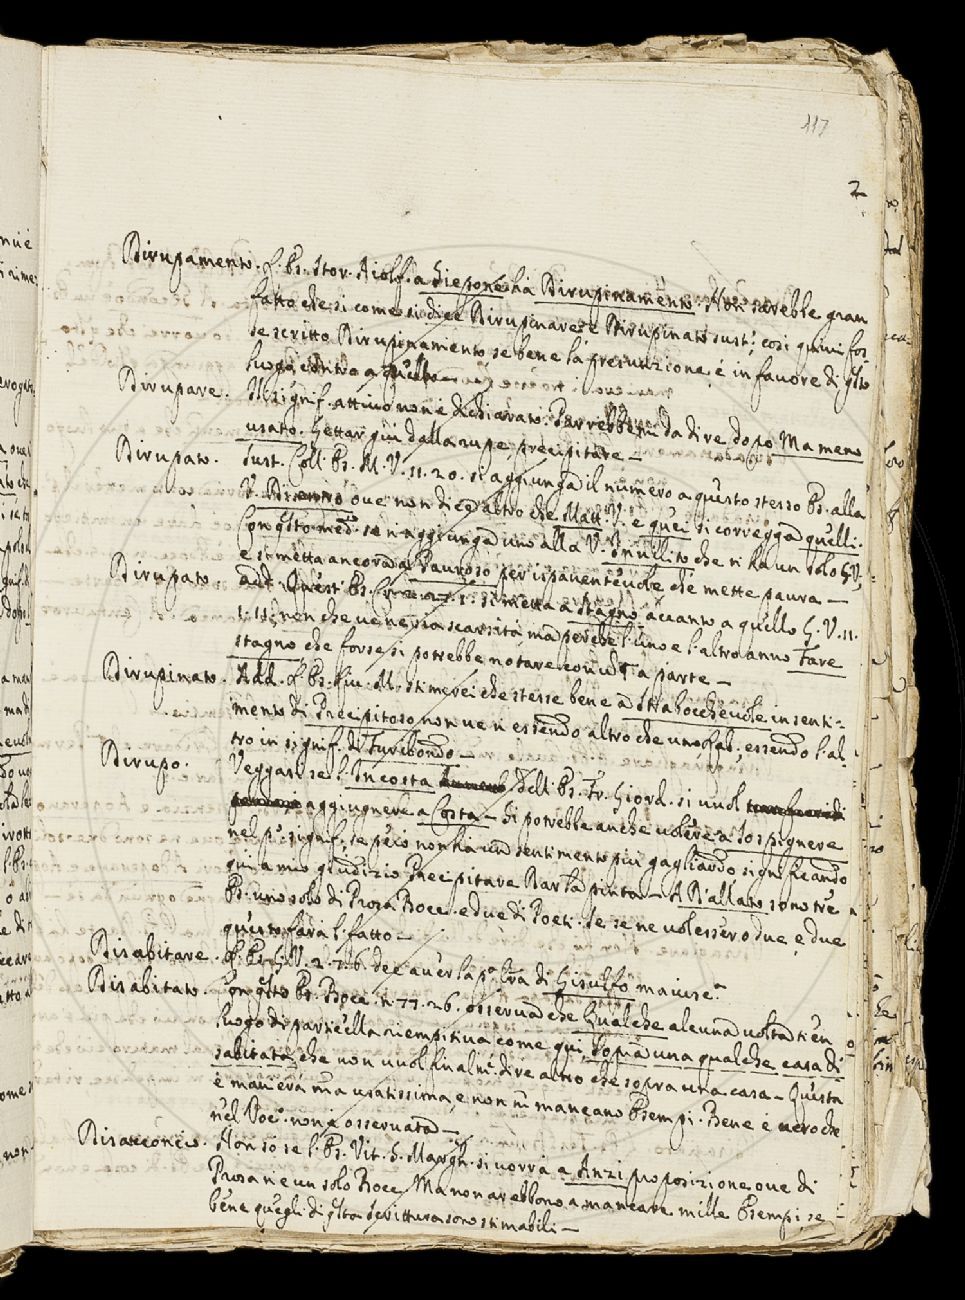 117
2
Dirupamento. L'Es. Stor. Aiolf. a Diepone ha Dirupinamento. Non sarebbe gran
fatto che si come si dice Dirupinare e Dirupinato sust.º così quivi fos-
se scritto Dirupinamento se bene la presunzione è in favore di q̃sto
luogo contro a quello —
Dirupare. Il signif. attivo non è dichiarato. Parrebbemi da dire dopo Ma meno
usato. Gettar giù dalla rupe, precipitare —
Dirupato. Sust. Coll'Es. M. V. 11. 20. si aggiunga il numero a questo stesso Es. alla
V. ove non dice altro che Matt. V. e quei si corregga quelli.
Con q̃sto med.º se n'aggiunga uno alla V. Inullito che n'ha un solo G. V.,
e si metta ancora a Pauroso per ispaventevole che mette paura —
Dirupato. add. Quest'Es. si metta a Stagno accanto a quello G. V. 11.
1. 11. non che ve ne sia scarsità ma perchè l'uno e l'altro anno Fare
stagno che forse si potrebbe notare con un § a parte —
Dirupinato. Add. L'Es. Liv. M. stimerei che stesse bene a Strabocchevole in senti-
mento di Precipitoso non ve n'essendo altro che uno, essendo l'al-
tro in signif. di Furibondo —
Dirupo. Veggasi se l'In costa dell'Es. Fr. Giord. si vuol
aggiugnere a Costa — Si potrebbe anche volere a Sospignere
nel p.º signif., se però non ha un sentimento più gagliardo significando
qui a mio giudizio Precipitare Dar la pinta — A Dallato sono tre
Es. uno solo di Prosa Bocc. e due di Poeti. Se se ne volessero due, e due
questo farà l'fatto —
Disabitare. L'Es. G. V. 2. 7. 6. dee aver la p.ª l̃ra di Gisulfo maiusc.ª
Disabitato. Con q̃sto Es. Bocc. n. 77. 26. osservo che Qualche alcuna volta tien
luogo di particella riempitiva come qui, Sopra una qualche casa di-
sabitata, che non vuol finalm.e dire altro che sopra una casa — Questa
è maniera n̄ra usatissima, e non ne mancano Esempi. Bene è vero che
nel Voc.º non è osservata —
Disacconcio. Non so se l'Es. Vit. S. Margh. si vorrà a Anzi preposizione ove di
Prosa n'è un solo Bocc. Ma non avebbono a mancare mille Esempi, se
bene quegli di q̃sta scrittura sono stimabili —